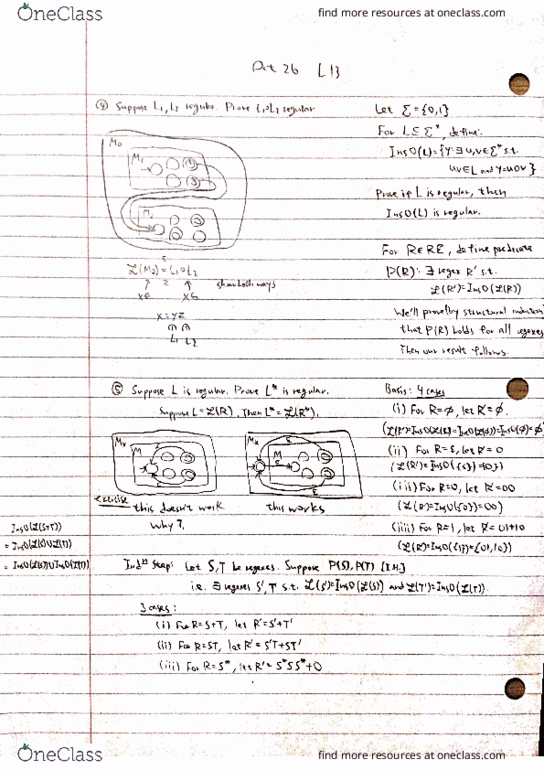 OneClass
find more resources at oneclass.com
Oct 26 L13
④ Suppose L₁, L₂ regular. Prove L₁∘L₂ regular
M₀
M₁
M₂
ε
ℒ(M₀) = L₁∘L₂
show both ways
x∈ x∈
x=yz
L₁ L₂
Let Σ = {0,1}
For L ⊆ Σ*, define:
Ins0(L) = {y: ∃ u,v∈Σ* s.t.
uv∈L and y=u0v}
Prove if L is regular, then
Ins0(L) is regular.
For R∈RE, define predicate
P(R): ∃ regex R' s.t.
ℒ(R')=Ins0(ℒ(R))
We'll prove (by structural induction)
that P(R) holds for all regexes
Then our result follows.
⑤ Suppose L is regular. Prove L* is regular.
Suppose L=ℒ(R). Then L*=ℒ(R*).
M* M
M* M
ε
exercise this doesn't work
why?
this works
Basis: 4 cases
(i) For R=∅, let R'=∅.
(ii) For R=ε, let R'=0
(ℒ(R')=Ins0({ε})={0})
(iii) For R=0, let R'=00
(ℒ(R')=Ins0({0})={00})
(iiii) For R=1, let R'=01+10
(ℒ(R')=Ins0({1})={01,10})
Ins0(ℒ(S+T))
= Ins0(ℒ(S)∪ℒ(T))
= Ins0(ℒ(S))∪Ins0(ℒ(T))
Indⁿ Step: Let S,T be regexes. Suppose P(S), P(T) [I.H.]
i.e. ∃ regexes S', T' s.t. ℒ(S')=Ins0(ℒ(S)) and ℒ(T')=Ins0(ℒ(T)).
3 cases:
(i) For R=S+T, let R'=S'+T'
(ii) For R=ST, let R'=S'T+ST'
(iii) For R=S*, let R'=S*S'S*+0
OneClass
find more resources at oneclass.com